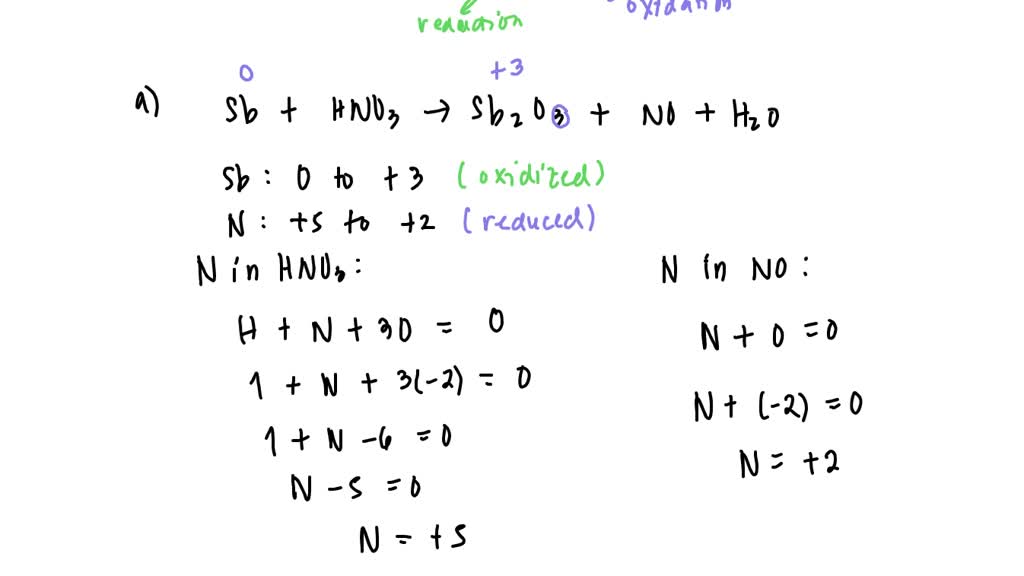 reduction
oxidation
0 +3
a) Sb + HNO₃ → Sb₂O₃ + NO + H₂O
Sb : 0 to +3 (oxidized)
N : +5 to +2 (reduced)
N in HNO₃ :
H + N + 3O = 0
1 + N + 3(-2) = 0
1 + N - 6 = 0
N - 5 = 0
N = +5
N in NO :
N + O = 0
N + (-2) = 0
N = +2